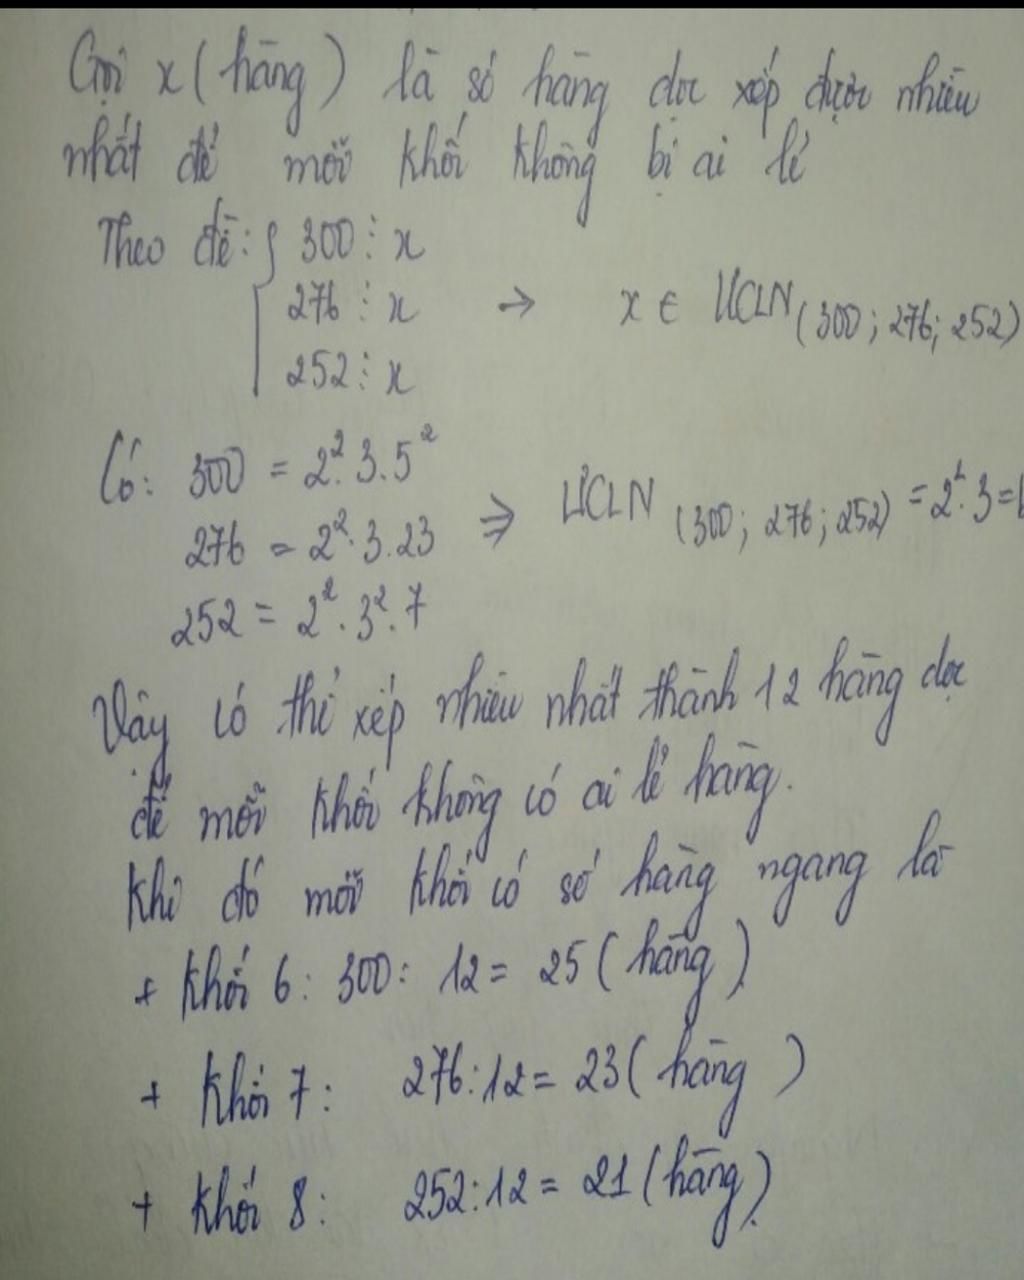 Gọi x (hàng) là số hàng dọc xếp được nhiều
nhất để mỗi khối không bị ai lẻ
Theo đề: { 300 ⋮ x
276 ⋮ x → x ∈ ƯCLN (300; 276; 252)
252 ⋮ x
Có: 300 = 2².3.5²
276 = 2².3.23 ⇒ ƯCLN (300; 276; 252) = 2².3=
252 = 2².3².7
Vậy có thể xếp nhiều nhất thành 12 hàng dọc
để mỗi khối không có ai lẻ hàng.
Khi đó mỗi khối có số hàng ngang là
+ Khối 6: 300: 12 = 25 (hàng)
+ Khối 7: 276:12 = 23 (hàng)
+ Khối 8: 252:12 = 21 (hàng)